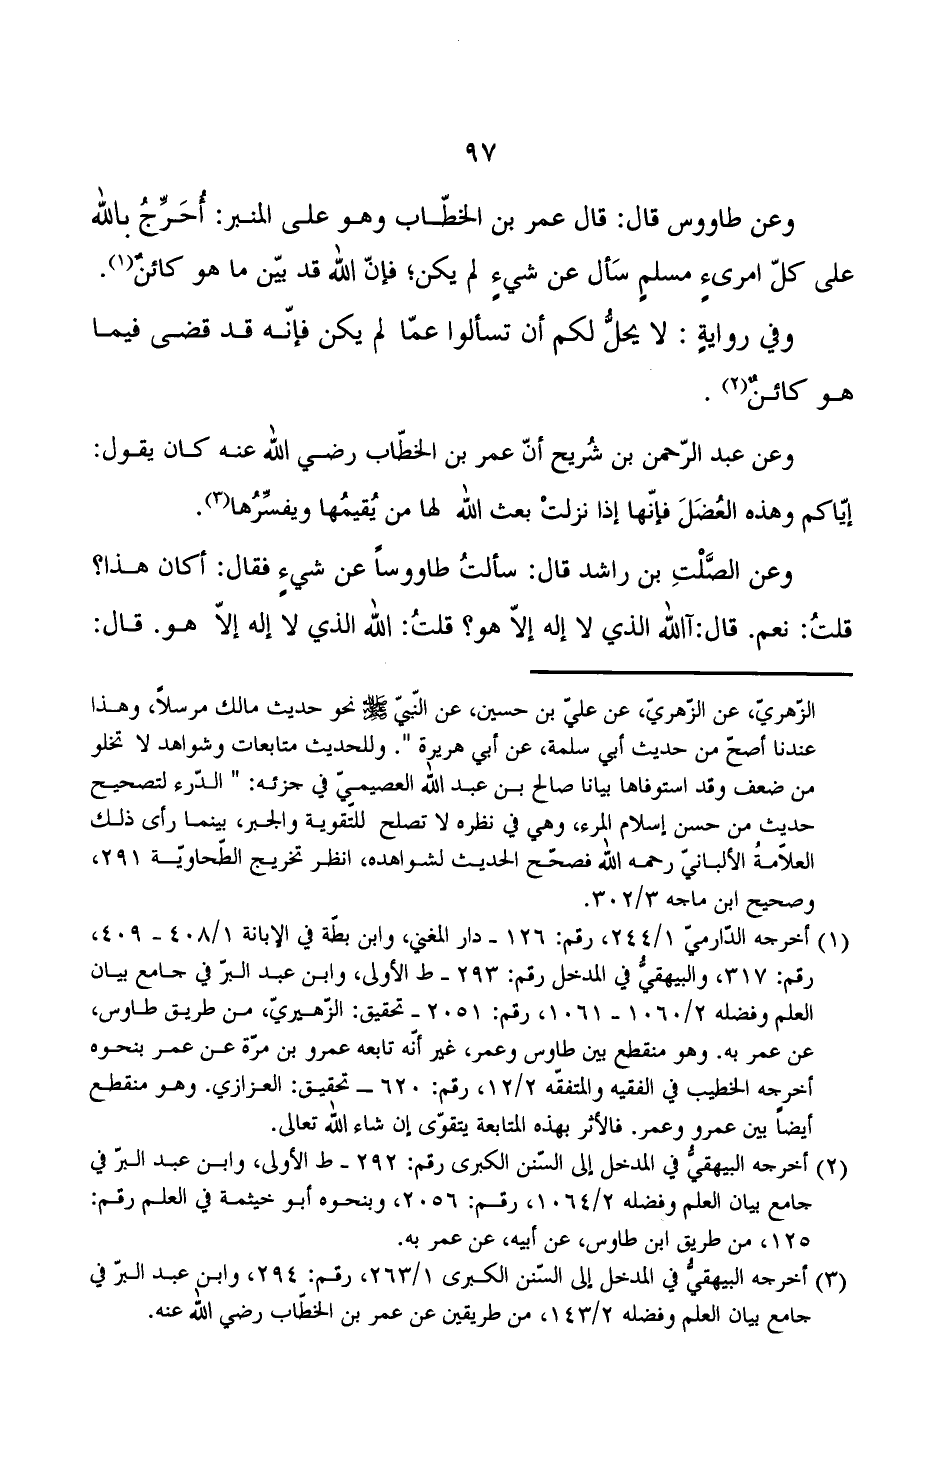 ٩٧
وعن طاووس قال: قال عمر بن الخطّاب وهو على المنبر: أُحَرِّجُ بالله
على كلّ امرىءٍ مسلمٍ سَأل عن شيءٍ لم يكن؛ فإنّ الله قد بيّن ما هو كائنٌ(١).
وفي روايةٍ : لا يحلُّ لكم أن تسألوا عمّا لم يكن فإنّه قد قضى فيما
هو كائنٌ(٢) .
وعن عبد الرّحمن بن شُريح أنّ عمر بن الخطّاب رضي الله عنه كان يقول:
إيّاكم وهذه العُضَلَ فإنّها إذا نزلتْ بعث الله لها من يُقيمُها ويفسِّرُها(٣).
وعن الصَّلْتِ بن راشد قال: سألتُ طاووساً عن شيءٍ فقال: أكان هذا؟
قلتُ: نعم. قال:آالله الذي لا إله إلاّ هو؟ قلتُ: الله الذي لا إله إلاّ هو. قال:
الزّهريّ، عن الزّهريّ، عن عليّ بن حسين، عن النّبيّ ﷺ نحو حديث مالك مرسلاً، وهذا
عندنا أصحّ من حديث أبي سلمة، عن أبي هريرة ". وللحديث متابعات وشواهد لا تخلو
من ضعف وقد استوفاها بيانا صالح بن عبد الله العصيميّ في جزئه: " الدّرء لتصحيح
حديث من حسن إسلام المرء، وهي في نظره لا تصلح للتّقوية والجبر، بينما رأى ذلك
العلاّمةُ الألبانيّ رحمه الله فصحّح الحديث لشواهده، انظر تخريج الطّحاويّة ٢٩١،
وصحيح ابن ماجه ٣٠٢/٣.
(١) أخرجه الدّارميّ ٢٤٤/١، رقم: ١٢٦ - دار المغني، وابن بطّة في الإبانة ٤٠٨/١ - ٤٠٩،
رقم: ٣١٧، والبيهقيُّ في المدخل رقم: ٢٩٣ - ط الأولى، وابن عبد البرّ في جامع بيان
العلم وفضله ١٠٦٠/٢ - ١٠٦١، رقم: ٢٠٥١ - تحقيق: الزّهيريّ، من طريق طاوس،
عن عمر به. وهو منقطع بين طاوس وعمر، غير أنّه تابعه عمرو بن مرّة عن عمر بنحوه
أخرجه الخطيب في الفقيه والمتفقّه ١٢/٢، رقم: ٦٢٠ – تحقيق: العزازي. وهو منقطع
أيضاً بين عمرو وعمر. فالأثر بهذه المتابعة يتقوّى إن شاء الله تعالى.
(٢) أخرجه البيهقيُّ في المدخل إلى السّنن الكبرى رقم: ٢٩٢ - ط الأولى، وابن عبد البرّ في
جامع بيان العلم وفضله ١٠٦٤/٢، رقم: ٢٠٥٦، وبنحوه أبو خيثمة في العلم رقم:
١٢٥، من طريق ابن طاوس، عن أبيه، عن عمر به.
(٣) أخرجه البيهقيُّ في المدخل إلى السّنن الكبرى ٢٦٣/١، رقم: ٢٩٤، وابن عبد البرّ في
جامع بيان العلم وفضله ١٤٣/٢، من طريقين عن عمر بن الخطّاب رضي الله عنه.